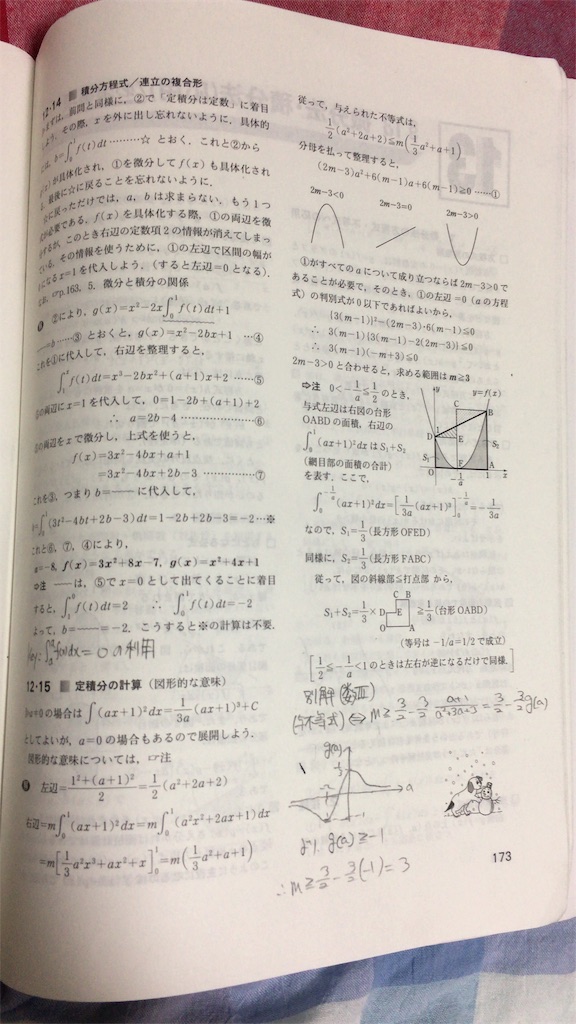 12・14 ■ 積分方程式／連立の複合形
前問と同様に，②で「定積分は定数」に着目
その際，xを外に出し忘れないように，具体的
b=∫₀¹f(t)dt ………☆ とおく．これと②から
が具体化され，①を微分してf(x)も具体化され
最後に☆に戻ることを忘れないように．
に戻っただけでは，a，bは求まらない．もう1つ
が必要である．f(x)を具体化する際，①の両辺を微
するが，このとき右辺の定数項2の情報が消えてしまっ
ている．その情報を使うために，①の左辺で区間の幅が
になるx=1を代入しよう．(すると左辺=0となる)．
なお，☞p.163．5．微分と積分の関係
②により，g(x)=x²−2x∫₀¹f(t)dt+1
=b ……③ とおくと，g(x)=x²−2bx+1 …④
これを①に代入して，右辺を整理すると，
∫₁ˣf(t)dt=x³−2bx²+(a+1)x+2 ……⑤
の両辺にx=1を代入して，0=1−2b+(a+1)+2
∴ a=2b−4 ………………⑥
の両辺をxで微分し，上式を使うと，
f(x)=3x²−4bx+a+1
=3x²−4bx+2b−3 ………………⑦
これを③，つまりb=――に代入して，
b=∫₀¹(3t²−4bt+2b−3)dt=1−2b+2b−3=−2…※
これと⑥，⑦，④により，
a=−8，f(x)=3x²+8x−7，g(x)=x²+4x+1
⇨注 ――は，⑤でx=0として出てくることに着目
すると，∫₁⁰f(t)dt=2 ∴ ∫₀¹f(t)dt=−2
よって，b=――=−2．こうすると※の計算は不要．
key: ∫ₐᵃf(x)dx=0の利用
12・15 ■ 定積分の計算（図形的な意味）
a≠0の場合は∫(ax+1)²dx=1/3a(ax+1)³+C
としてよいが，a=0の場合もあるので展開しよう．
図形的な意味については，☞注
左辺=(1²+(a+1)²)/2=1/2(a²+2a+2)
右辺=m∫₀¹(ax+1)²dx=m∫₀¹(a²x²+2ax+1)dx
=m[1/3a²x³+ax²+x]₀¹=m(1/3a²+a+1)
従って，与えられた不等式は，
1/2(a²+2a+2)≦m(1/3a²+a+1)
分母を払って整理すると，
(2m−3)a²+6(m−1)a+6(m−1)≧0 ……①
2m−3<0 2m−3=0 2m−3>0
①がすべてのaについて成り立つならば2m−3>0で
あることが必要で，そのとき，①の左辺=0（aの方程
式）の判別式が0以下であればよいから，
{3(m−1)}²−(2m−3)・6(m−1)≦0
∴ 3(m−1){3(m−1)−2(2m−3)}≦0
∴ 3(m−1)(−m+3)≦0
2m−3>0と合わせると，求める範囲はm≧3
⇨注 0<−1/a≦1/2のとき，
与式左辺は右図の台形
OABDの面積，右辺の
∫₀¹(ax+1)²dxはS₁+S₂
（網目部の面積の合計）
を表す．ここで，
y y=f(x)
C B
1
D E
S₁ S₂
O F A 1 x
−1/a
∫₀^(−1/a)(ax+1)²dx=[1/3a(ax+1)³]₀^(−1/a)=−1/3a
なので，S₁=1/3（長方形OFED）
同様に，S₂=1/3（長方形FABC）
従って，図の斜線部≦打点部 から，
C B
D E
O A
S₁+S₂=1/3× ≦1/3（台形OABD）
（等号は−1/a=1/2で成立）
[1/2≦−1/a<1のときは左右が逆になるだけで同様．]
別解（数Ⅲ）
(与不等式)⇔m≧3/2−3/2・(a+1)/(a²+3a+3)=3/2−3/2g(a)
g(a)
1/3
−2
a
−1
より g(a)≧−1
∴m≧3/2−3/2(−1)=3
173